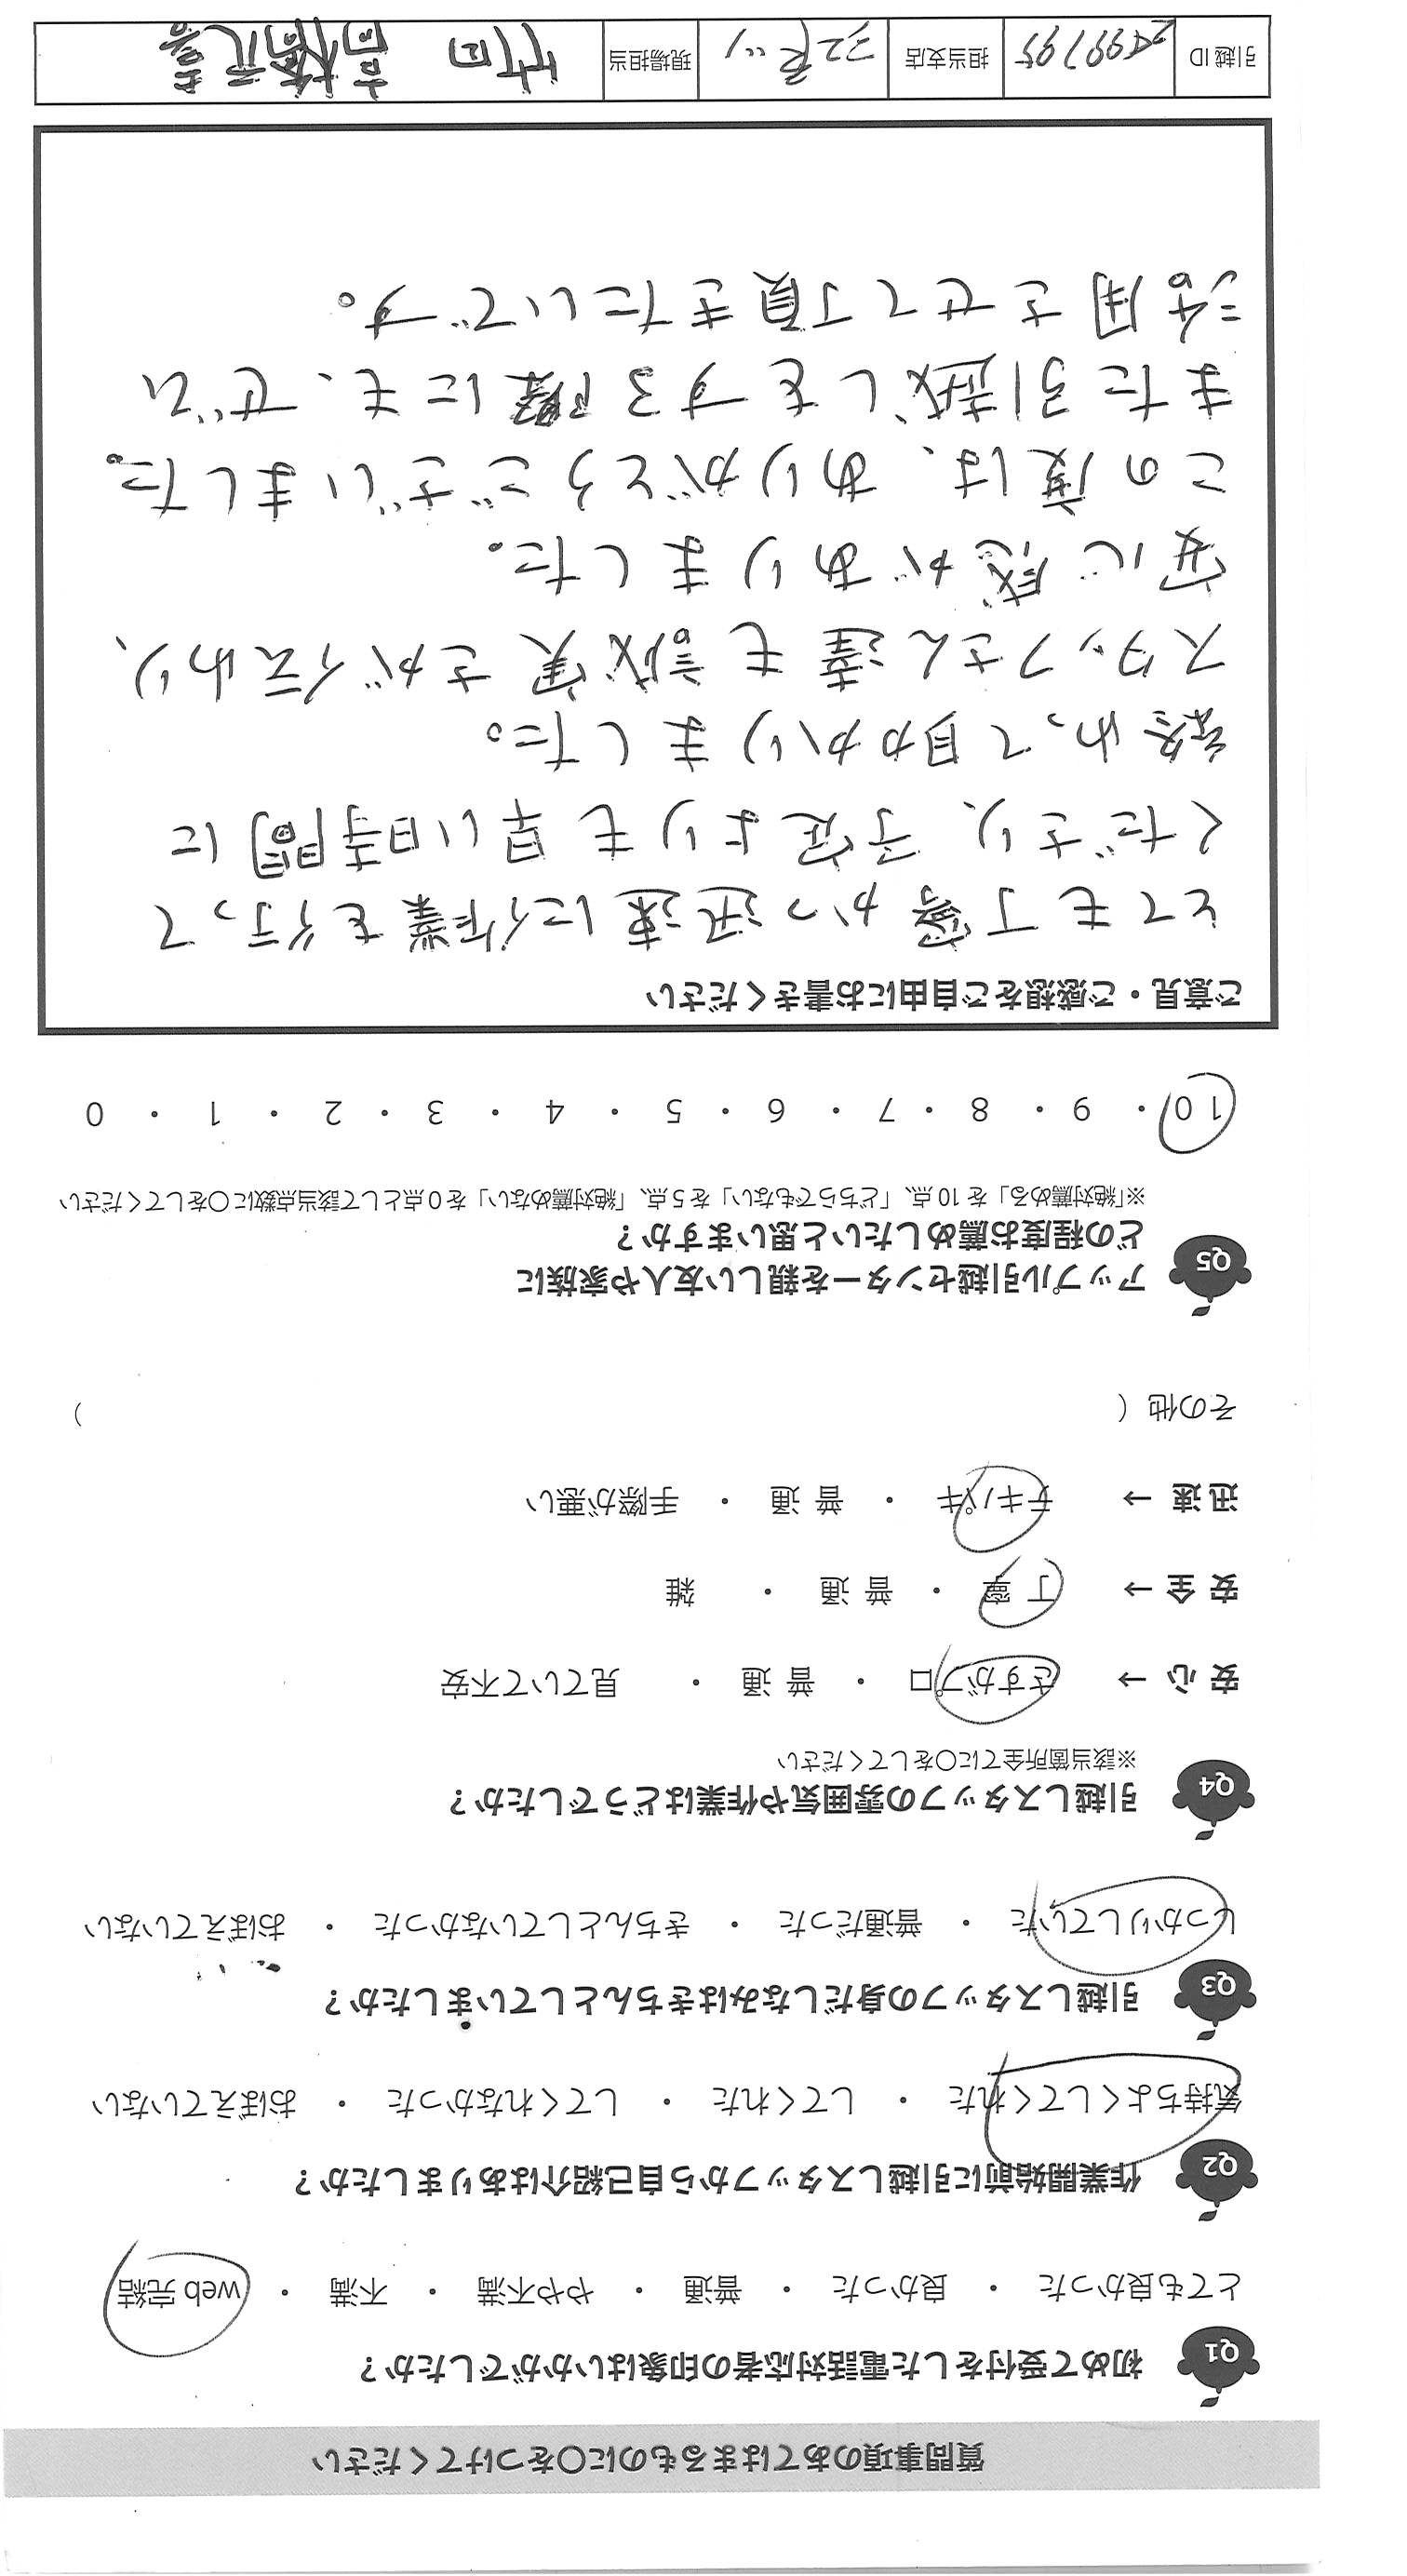 質問事項のあてはまるものに〇をつけてください
Q1 初めて受付をした電話対応者の印象はいかがでしたか？
とても良かった ・ 良かった ・ 普通 ・ やや不満 ・ 不満 ・ web 完結
Q2 作業開始前に引越しスタッフから自己紹介はありましたか？
気持ちよくしてくれた ・ してくれた ・ してくれなかった ・ おぼえていない
Q3 引越しスタッフの身だしなみはきちんとしていましたか？
しっかりしていた ・ 普通だった ・ きちんとしていなかった ・ おぼえていない
Q4 引越しスタッフの雰囲気や作業はどうでしたか？
※該当箇所全てに〇をしてください
安 心 → さすがプロ ・ 普 通 ・ 見ていて不安
安 全 → 丁 寧 ・ 普 通 ・ 雑
迅 速 → テキパキ ・ 普 通 ・ 手際が悪い
その他（ ）
Q5 アップル引越センターを親しい友人や家族に
どの程度お薦めしたいと思いますか？
※「絶対薦める」を 10 点、「どちらでもない」を 5 点、「絶対薦めない」を 0 点として該当点数に〇をしてください
10 ・ 9 ・ 8 ・ 7 ・ 6 ・ 5 ・ 4 ・ 3 ・ 2 ・ 1 ・ 0
ご意見・ご感想をご自由にお書きください
とても丁寧かつ迅速に作業を行って
くださり、予定よりも早い時間に
終わって助かりました。
スタッフさん達も誠実さが伝わり、
安心感がありました。
この度は、ありがとうございました。
また引越しをする際にも、ぜひ
活用させて頂きたいです。
引越 ID 担当支店 現場担当 竹内 高橋